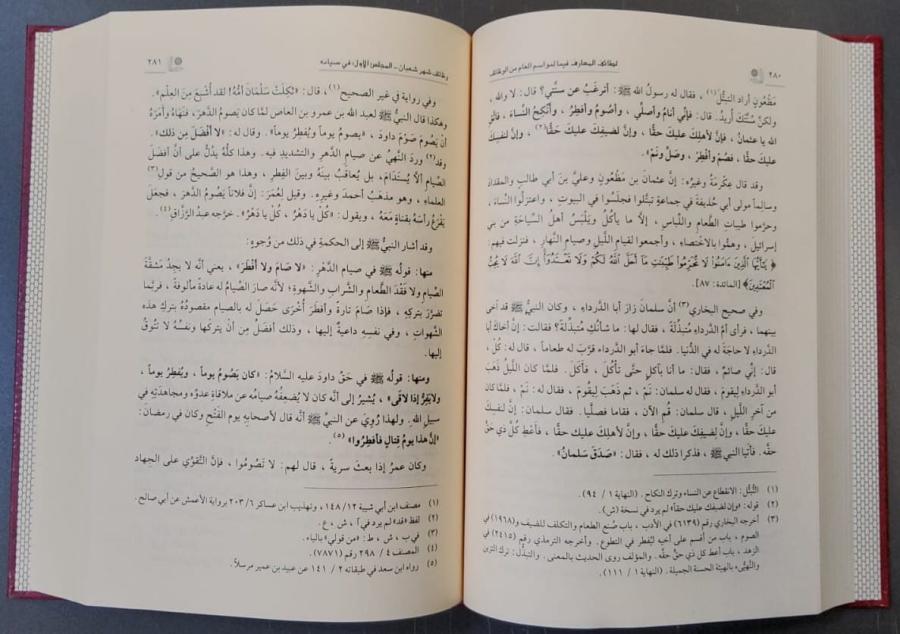 ٢٨٠ لطائف المعارف فيما لمواسم العام من الوظائف
مَظْعُونٍ أراد التبتُّلَ(١) ، فقال له رسولُ الله ﷺ : أترغَبُ عن سنَّتي؟ قال: لا والله ،
ولكنْ سُنَّتَكَ أُريدُ. قال: فإنِّي أنامُ وأُصلِّي ، وأصُومُ وأُفطِرُ ، وأَنْكِحُ النِّساءَ ، فاتَّقِ
الله يا عثمانُ ، فإنَّ لأهلِكَ عليكَ حقًّا ، وإنَّ لضيفِكَ عليكَ حقًّا(٢) ، وإنَّ لنفسِكَ
عليكَ حقًّا ، فصُمْ وأفْطِرْ ، وصَلِّ ونَمْ».
وقد قال عِكْرِمَةُ وغيرُه: إنَّ عثمانَ بن مَظْعُونٍ وعليَّ بنَ أبي طالبٍ والمِقدادَ
وسالِماً مولى أبي حُذيفةَ في جماعةٍ تبتَّلُوا فجلَسُوا في البيوتِ ، واعتزلُوا النِّساءَ ،
وحرَّموا طيباتِ الطَّعامِ واللِّباسِ ، إلَّا ما يأكُلُ ويَلْبَسُ أهلُ السِّياحَةِ من بني
إسرائيلَ ، وهمُّوا بالاختصاءِ ، وأجمعوا لقيامِ اللَّيلِ وصيامِ النَّهارِ ، فنزلت فيهم:
﴿ يَٰٓأَيُّهَا ٱلَّذِينَ ءَامَنُواْ لَا تُحَرِّمُواْ طَيِّبَٰتِ مَآ أَحَلَّ ٱللَّهُ لَكُمْ وَلَا تَعْتَدُوٓاْ إِنَّ ٱللَّهَ لَا يُحِبُّ
ٱلْمُعْتَدِينَ﴾ [المائدة: ٨٧].
وفي صحيح البخاري(٣) أنَّ سلمانَ زارَ أبا الدَّرداءِ ، وكان النبيُّ ﷺ قد آخى
بينهما ، فرأى أمَّ الدَّرداءِ مُتبذِّلةً ، فقال لها: ما شأنُكِ مُتبذِّلةً؟ فقالت: إنَّ أخاكَ أبا
الدَّرداءِ لا حاجةَ له في الدُّنيا. فلمَّا جاءَ أبو الدَّرداء قرَّبَ له طعاماً ، قال له: كُلْ ،
قال: إنِّي صائمٌ ، فقال: ما أنا بآكلٍ حتَّى تأكُلَ ، فأكلَ. فلمَّا كان اللَّيلُ ذَهَبَ
أبو الدَّرداءِ ليقومَ ، فقال له سلمان: نَمْ ، ثم ذهَبَ ليقُومَ ، فقال له: نَمْ ، فلمَّا كان
من آخرِ اللَّيلِ ، قال سلمان: قُمِ الآن ، فقاما فصلَّيا. فقال سلمان: إنَّ لنفسِكَ
عليكَ حقًّا ، وإنَّ لضيفِكَ عليكَ حقًّا ، وإنَّ لأهلِكَ عليكَ حقًّا ، فأعْطِ كُلَّ ذي حَقٍّ
حقَّه. فأتيا النبيَّ ﷺ ، فذكرا ذلك له ، فقال: «صَدَقَ سَلمانُ».
(١) التَّبَتُّل: الانقطاع عن النساء وترك النكاح. (النهاية ١ / ٩٤) .
(٢) قوله: «وإن لضيفك عليك حقاً» لم يرد في نسخة (ش).
(٣) أخرجه البخاري رقم (٦١٣٩) في الأدب ، باب صنع الطعام والتكلف للضيف و(١٩٦٨) في
الصوم ، باب من أقسم على أخيه ليُفطر في التطوع. وأخرجه الترمذي رقم (٢٤١٥) في
الزهد ، باب أعط كل ذي حقٍّ حقَّه. والمؤلف روى الحديث بالمعنى. والتبذُّل: ترك التزين
والتَّهيُّىء بالهيئة الحسنة الجميلة. (النهاية ١ / ١١١) .
وظائف شهر شعبان - المجلس الأول: في صيامه ٢٨١
وفي رواية في غير الصحيح(١) ، قال: «ثَكِلَتْ سَلْمَانَ أُمُّهُ! لقد أُشبِعَ مِنَ العِلْمِ».
وهكذا قال النبيُّ ﷺ لعبد الله بن عمرو بن العاص لمَّا كان يَصُومُ الدَّهرَ ، فنَهَاهُ وأمَرَهُ
أنْ يَصُومَ صَوْمَ داودَ ، «يصومُ يوماً ويُفطِرُ يوماً». وقال له: «لا أفضَلَ مِن ذلك».
وقد(٢) وردَ النَّهيُ عن صيامِ الدَّهرِ والتشديد فيه. وهذا كلُّهُ يدُلُّ على أنَّ أفضلَ
الصِّيامِ ألاَّ يُستَدَامَ، بل يُعاقَبُ بينَهُ وبين الفِطر ، وهذا هو الصَّحيحُ من قول(٣)
العلماء ، وهو مذهَبُ أحمدَ وغيرِه. وقيل لِعُمَرَ: إنَّ فلاناً يَصُومُ الدَّهرَ ، فجعَلَ
يَقْرَعُ رأسَهُ بقناةٍ مَعَهُ ، ويقول: «كُلْ يا دَهْرُ ، كُلْ يا دَهْرُ». خرَّجه عبدُ الرَّزَّاق(٤).
وقد أشار النبيُّ ﷺ إلى الحكمةِ في ذلك من وُجوهٍ:
منها: قولُه ﷺ في صيام الدَّهرِ: «لا صَامَ ولا أفْطَرَ» ، يعني أنَّه لا يجدُ مشقَّةَ
الصِّيامِ ولا فَقْدَ الطَّعامِ والشَّرابِ والشهوةِ؛ لأنَّه صارَ الصِّيامُ له عادةً مألوفةً ، فربَّما
تضرَّرَ بتركِهِ ، فإذا صَامَ تارةً وأفطَرَ أُخْرَى حَصَلَ له بالصِّيامِ مقصودُهُ بتركِ هذه
الشَّهواتِ ، وفي نفسِهِ داعيةٌ إليها ، وذلك أفضلُ مِنْ أن يترُكَها ونفسُهُ لا تتُوقُ
إليها.
ومنها: قولُه ﷺ في حَقِّ داودَ عليه السلامُ: «كان يَصُومُ يوماً ، ويُفطِرُ يوماً ،
ولا يَفِرُّ إذا لاقَى» ، يُشيرُ إلى أنَّه كان لا يُضعِفُهُ صيامُه عن مُلاقاةِ عدوِّه ومجاهدتِهِ في
سبيلِ الله. ولهذا رُويَ عن النبيِّ ﷺ أنَّه قال لأصحابِهِ يومِ الفَتْحِ وكان في رمضانَ:
«إنَّ هذا يومُ قِتَالٍ فأفطِرُوا» (٥)
وكان عمرُ إذا بعَثَ سريةً ، قال لهم: لا تَصُومُوا ، فإنَّ التَّقوِّي على الجهاد
(١) مصنف ابن أبي شيبة ١٢/ ١٤٨ ، وتهذيب ابن عساكر ٦/ ٢٠٣ برواية الأعمش عن أبي صالح.
(٢) لفظ «قد» لم يرد في آ ، ش ، ع .
(٣) في ب ، ش ، ط : «من قولي» بالياء.
(٤) المصنف ٤ / ٢٩٨ رقم (٧٨٧١)
(٥) رواه ابن سعد في طبقاته ٢ / ١٤١ عن عبيد بن عمير مرسلاً.